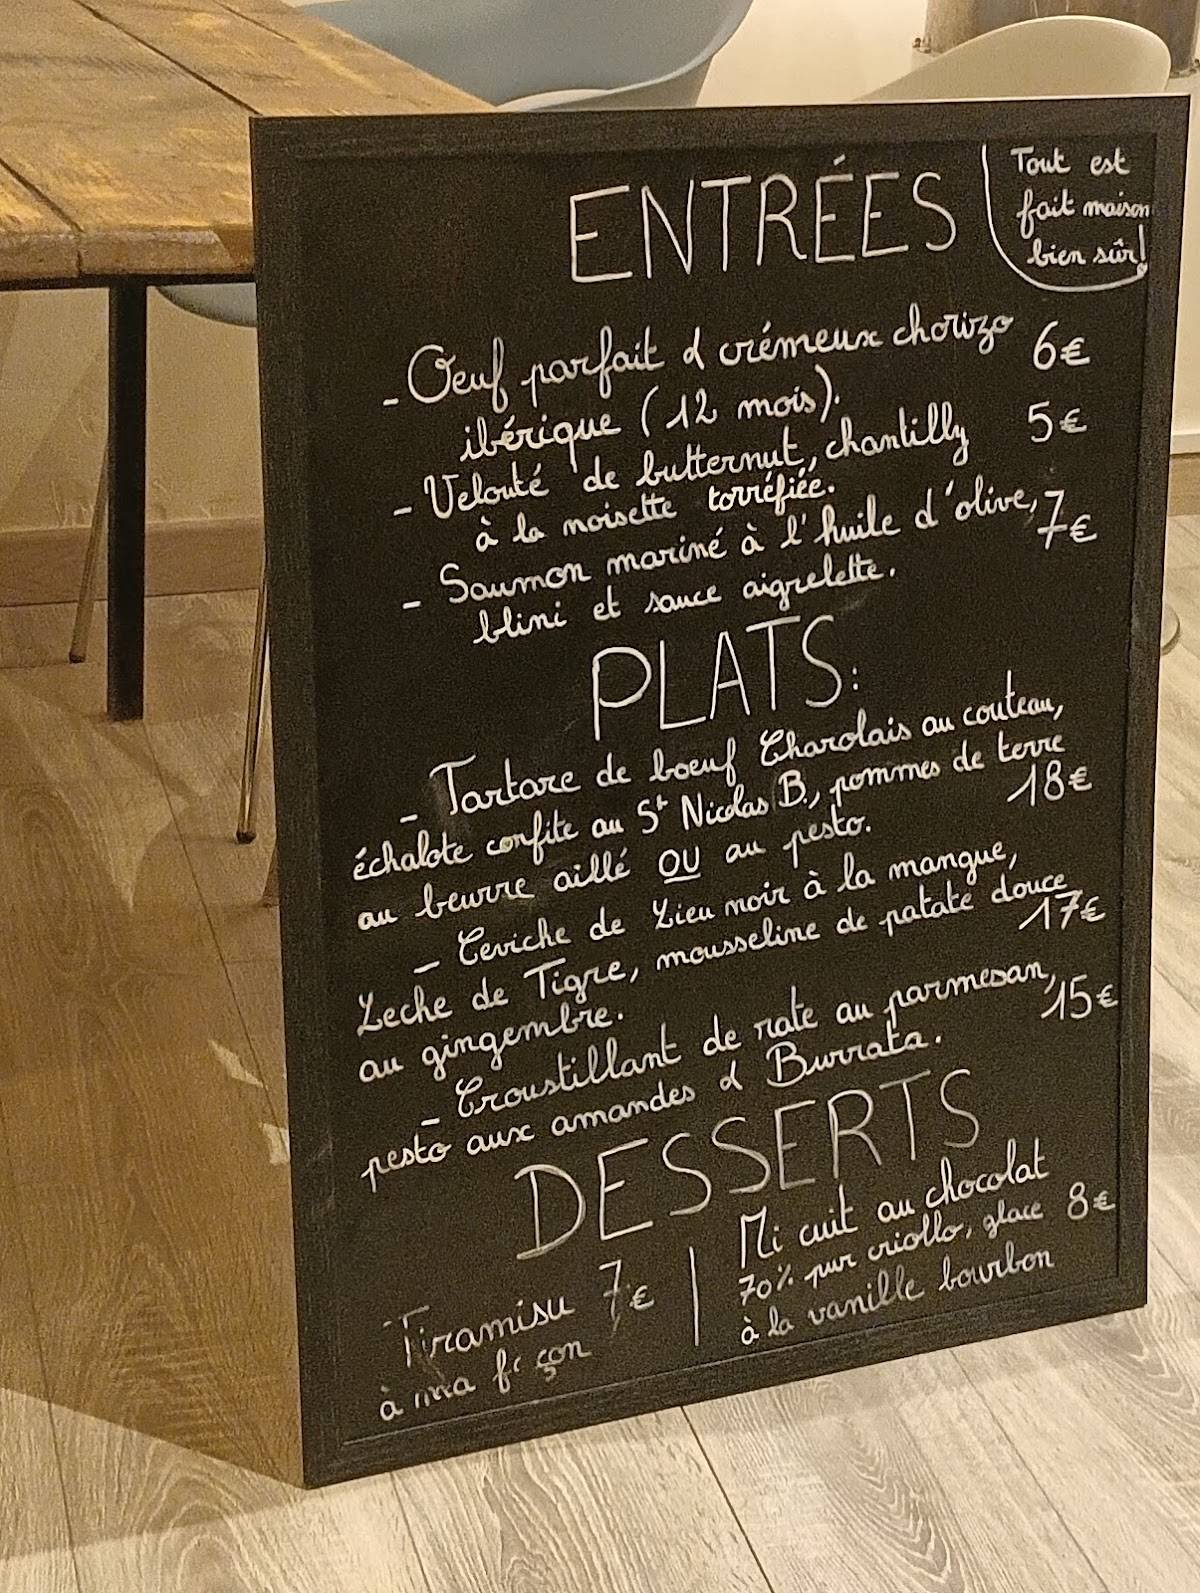 ENTRÉES
Tout est
fait maison
bien sûr!
- Œuf parfait & crémeux chorizo 6€
ibérique (12 mois).
- Velouté de butternut, chantilly 5€
à la noisette torréfiée.
- Saumon mariné à l'huile d'olive, 7€
blini et sauce aigrelette.
PLATS:
- Tartare de boeuf Charolais au couteau,
échalote confite au St Nicolas B., pommes de terre
au beurre aillé OU au pesto. 18€
- Ceviche de Lieu noir à la mangue,
Leche de Tigre, mousseline de patate douce
au gingembre. 17€
- Croustillant de rate au parmesan, 15€
pesto aux amandes & Burrata.
DESSERTS
- Tiramisu 7€
à ma façon
Mi cuit au chocolat
70% pur criollo, glace 8€
à la vanille bourbon